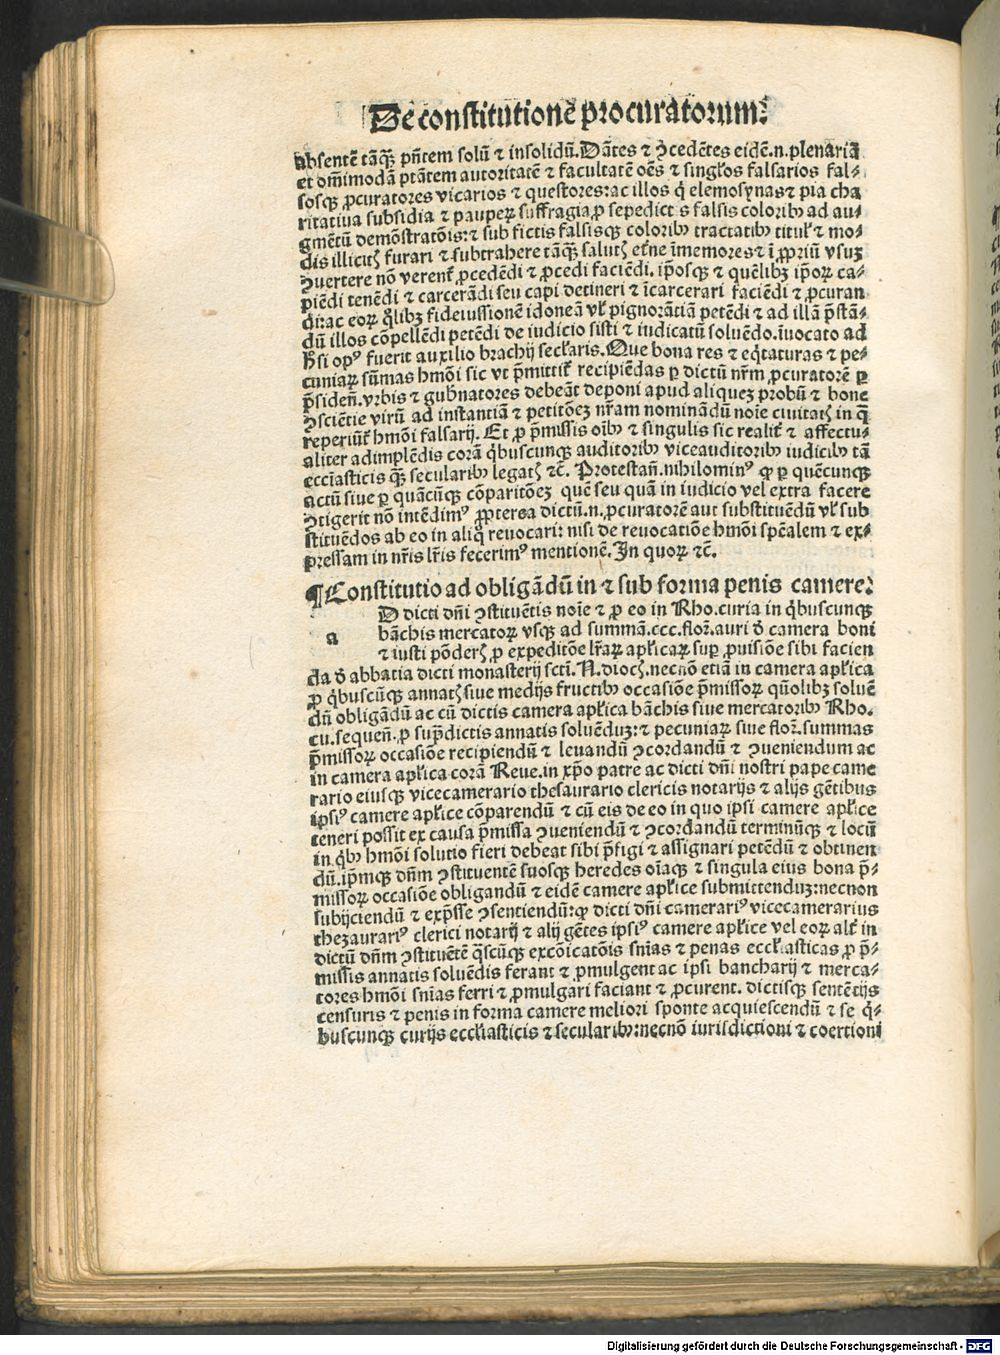 De constitutione procuratorum.
absentē tāꝗ̄ p̄ntem solū ⁊ insolidū. Dātes ⁊ ꝯcedētes eidē .n. plenariā
et om̄imodā ptātem autoritatē ⁊ facultatē oēs ⁊ singl̓os falsarios fal⸗
sosꝙ ꝓcuratores vicarios ⁊ questores: ac illos q̇ elemosynas ⁊ pia cha
ritatiua subsidia ⁊ pauperꝝ suffragia ꝓ sepedict s falsis coloribꝰ ad au⸗
gmētū demōstratōis: ⁊ sub fictis falsisꝙ coloribꝰ tractatibꝰ titul̓ ⁊ mo⸗
dis illicitꝭ furari ⁊ subtrahere tāꝙ̄ salutꝭ et̓ne īmemores ⁊ ī ꝓpriū vsuꝫ
ꝯuertere nō verent̓ ꝓcedēdi ⁊ ꝓcedi faciēdi. ip̄osꝙ ⁊ quēlibꝫ ip̄orꝝ ca⸗
piēdi tenēdi ⁊ carcerādi seu capi detineri ⁊ īcarcerari faciēdi ⁊ ꝓcuran
di: ac eorꝝ q̄libꝫ fideiussionē idoneā vl̓ pignorātiā petēdi ⁊ ad illā p̄stā⸗
dū illos cōpellēdi petēdi de iudicio sisti ⁊ iudicatū soluēdo. īuocato ad
h̓ si opꝰ fuerit auxilio brachij secl̓aris. Que bona res ⁊ eq̇taturas ⁊ pe⸗
cuniarꝝ sūmas hmōi sic vt p̄mittit̓ recipiēdas ꝑ dictū nr̄m ꝓcuratorē ꝑ
p̄siden̄. vrbis ⁊ gub̓natores debeāt deponi apud aliqueꝫ probū ⁊ bone
ꝯsciētie virū ad instantiā ⁊ petitōeꝫ nr̄am nominādū noīe ciuitatꝭ in q̄
reperiūt̓ hmōi falsarij. Et ꝓ p̄missis oībꝰ ⁊ singulis sic realit̓ ⁊ affectu⸗
aliter adimplēdis corā q̇buscunꝙ auditoribꝰ viceauditoribꝰ iudicibꝰ tā
eccl̄iasticis ꝙ̄ secularibꝰ legatꝭ ⁊c̄. Protestan̄. nihilominꝰ ꝙ ꝑ quēcunꝙ
actū siue ꝑ quācūꝙ cōparitōeꝫ quē seu quā in iudicio vel extra facere
ꝯtigerit nō intēdimꝰ ꝓpterea dictū .n. ꝓcuratorē aut substituēdū vl̓ sub
stituēdos ab eo in aliq̇ reuocari: nisi de reuocatiōe hmōi spēalem ⁊ ex⸗
pressam in nr̄is lr̄is fecerimꝰ mentionē. In quorꝝ ⁊c̄.
¶ Constitutio ad obligādū in ⁊ sub forma penis camere.
a
D dicti dn̄i ꝯstituētis noīe ⁊ ꝓ eo in Rho. curia in q̇buscunꝙ
bāchis mercatorꝝ vsꝙ ad summā .ccc. flor̄. auri d̓ camera boni
⁊ iusti pōderꝭ ꝓ expeditōe lr̄arꝝ apl̓icarꝝ suꝑ ꝓuisiōe sibi facien
da d̓ abbatia dicti monasterij sctī. N. diocꝭ. necnō etiā in camera apl̓ica
ꝓ q̇buscūꝙ annatꝭ siue medijs fructibꝰ occasiōe p̄missorꝝ qūolibꝫ soluē
dū obligādū ac cū dictis camera apl̓ica bāchis siue mercatoribꝰ Rho.
cu. sequen̄. ꝓ sup̄dictis annatis soluēduꝫ: ⁊ pecuniarꝝ siue flor̄. summas
p̄missorꝝ occasiōe recipiendū ⁊ leuandū ꝯcordandū ⁊ ꝯueniendum ac
in camera apl̓ica corā Reue. in xp̄o patre ac dicti dn̄i nostri pape came
rario eiusꝙ vicecamerario thesaurario clericis notarijs ⁊ alijs gētibus
ipsiꝰ camere apl̓ice cōparendū ⁊ cū eis de eo in quo ipsi camere apl̓ice
teneri possit ex causa p̄missa ꝯueniendū ⁊ ꝯcordandū terminūꝙ ⁊ locū
in q̇bꝰ hmōi solutio fieri debeat sibi p̄figi ⁊ assignari petēdū ⁊ obtinen
dū. ip̄mꝙ dn̄m ꝯstituentē suosꝙ heredes oīaꝙ ⁊ singula eius bona p̄⸗
missorꝝ occasiōe obligandū ⁊ eidē camere apl̓ice submittenduꝫ: necnon
subijciendū ⁊ exp̄sse ꝯsentiendū: ꝙ dicti dn̄i camerariꝰ vicecamerarius
thezaurariꝰ clerici notarij ⁊ alij gētes ipsiꝰ camere apl̓ice vel eorꝝ alt̓ in
dictū dn̄m ꝯstituētē q̇scūꝙ excōicatōis sn̄ias ⁊ penas eccl̓iasticas ꝓ p̄⸗
missis annatis soluēdis ferant ⁊ ꝓmulgent ac ipsi bancharij ⁊ merca⸗
tores hmōi sn̄ias ferri ⁊ ꝓmulgari faciant ⁊ ꝓcurent. dictisꝙ sentētijs
censuris ⁊ penis in forma camere meliori sponte acquiescendū ⁊ se q̇⸗
buscunꝙ curijs eccl̓iasticis ⁊ secularibꝰ: necnō iurisdictioni ⁊ coertioni
Digitalisierung gefördert durch die Deutsche Forschungsgemeinschaft - DFG